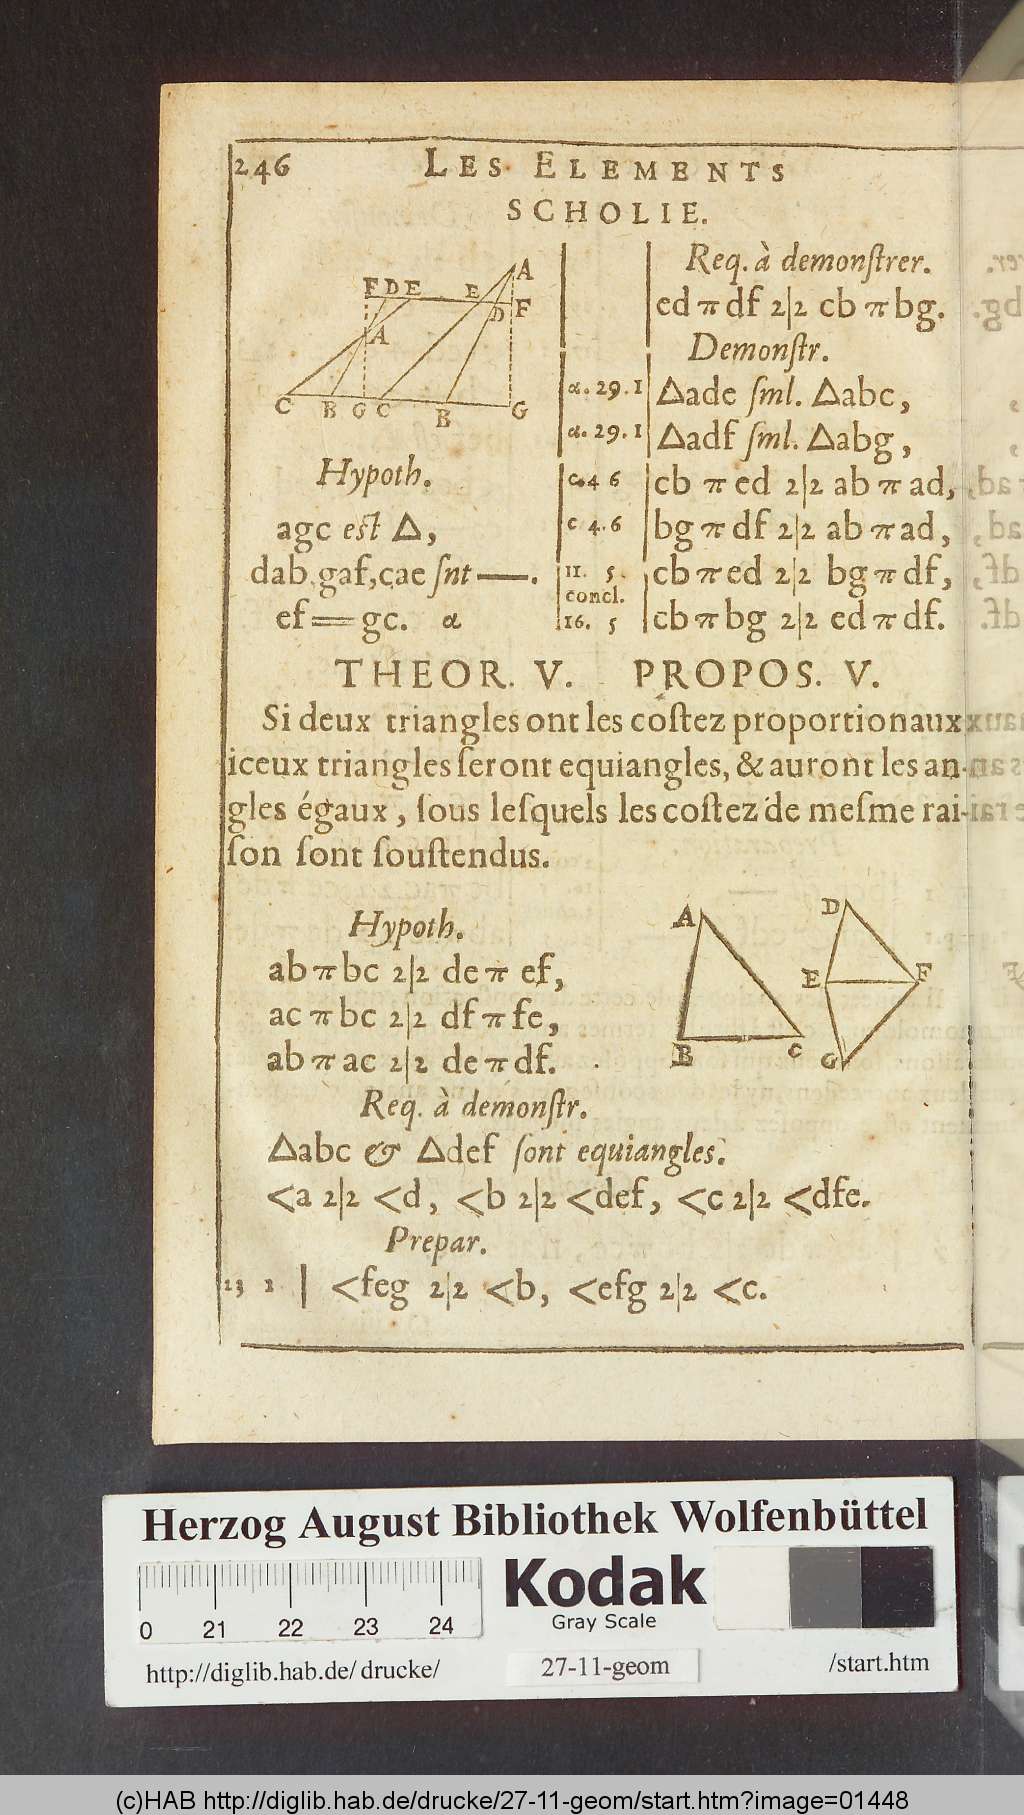 246 LES ELEMENTS
SCHOLIE.
F D E E A
D F
A
C B G C B G
Hypoth.
agc eſt △,
dab, gaf, cae ſnt —.
ef = gc. α
Req. à demonſtrer.
ed π df 2|2 cb π bg.
Demonſtr.
α. 29. 1 △ade ſml. △abc,
α. 29. 1 △adf ſml. △abg,
c. 4 6 cb π ed 2|2 ab π ad,
c 4. 6 bg π df 2|2 ab π ad,
11. 5. cb π ed 2|2 bg π df,
concl.
16. 5 cb π bg 2|2 ed π df.
THEOR. V. PROPOS. V.
Si deux triangles ont les coſtez proportionaux
iceux triangles ſeront equiangles, & auront les an-
gles égaux, ſous leſquels les coſtez de meſme rai-
ſon ſont ſouſtendus.
Hypoth.
ab π bc 2|2 de π ef,
ac π bc 2|2 df π fe,
ab π ac 2|2 de π df.
A D
E F
B C G
Req. à demonſtr.
△abc & △def ſont equiangles.
<a 2|2 <d, <b 2|2 <def, <c 2|2 <dfe.
Prepar.
23 1 | <feg 2|2 <b, <efg 2|2 <c.
Herzog August Bibliothek Wolfenbüttel
0 21 22 23 24
Kodak
Gray Scale
http://diglib.hab.de/drucke/ 27-11-geom /start.htm
(c)HAB http://diglib.hab.de/drucke/27-11-geom/start.htm?image=01448